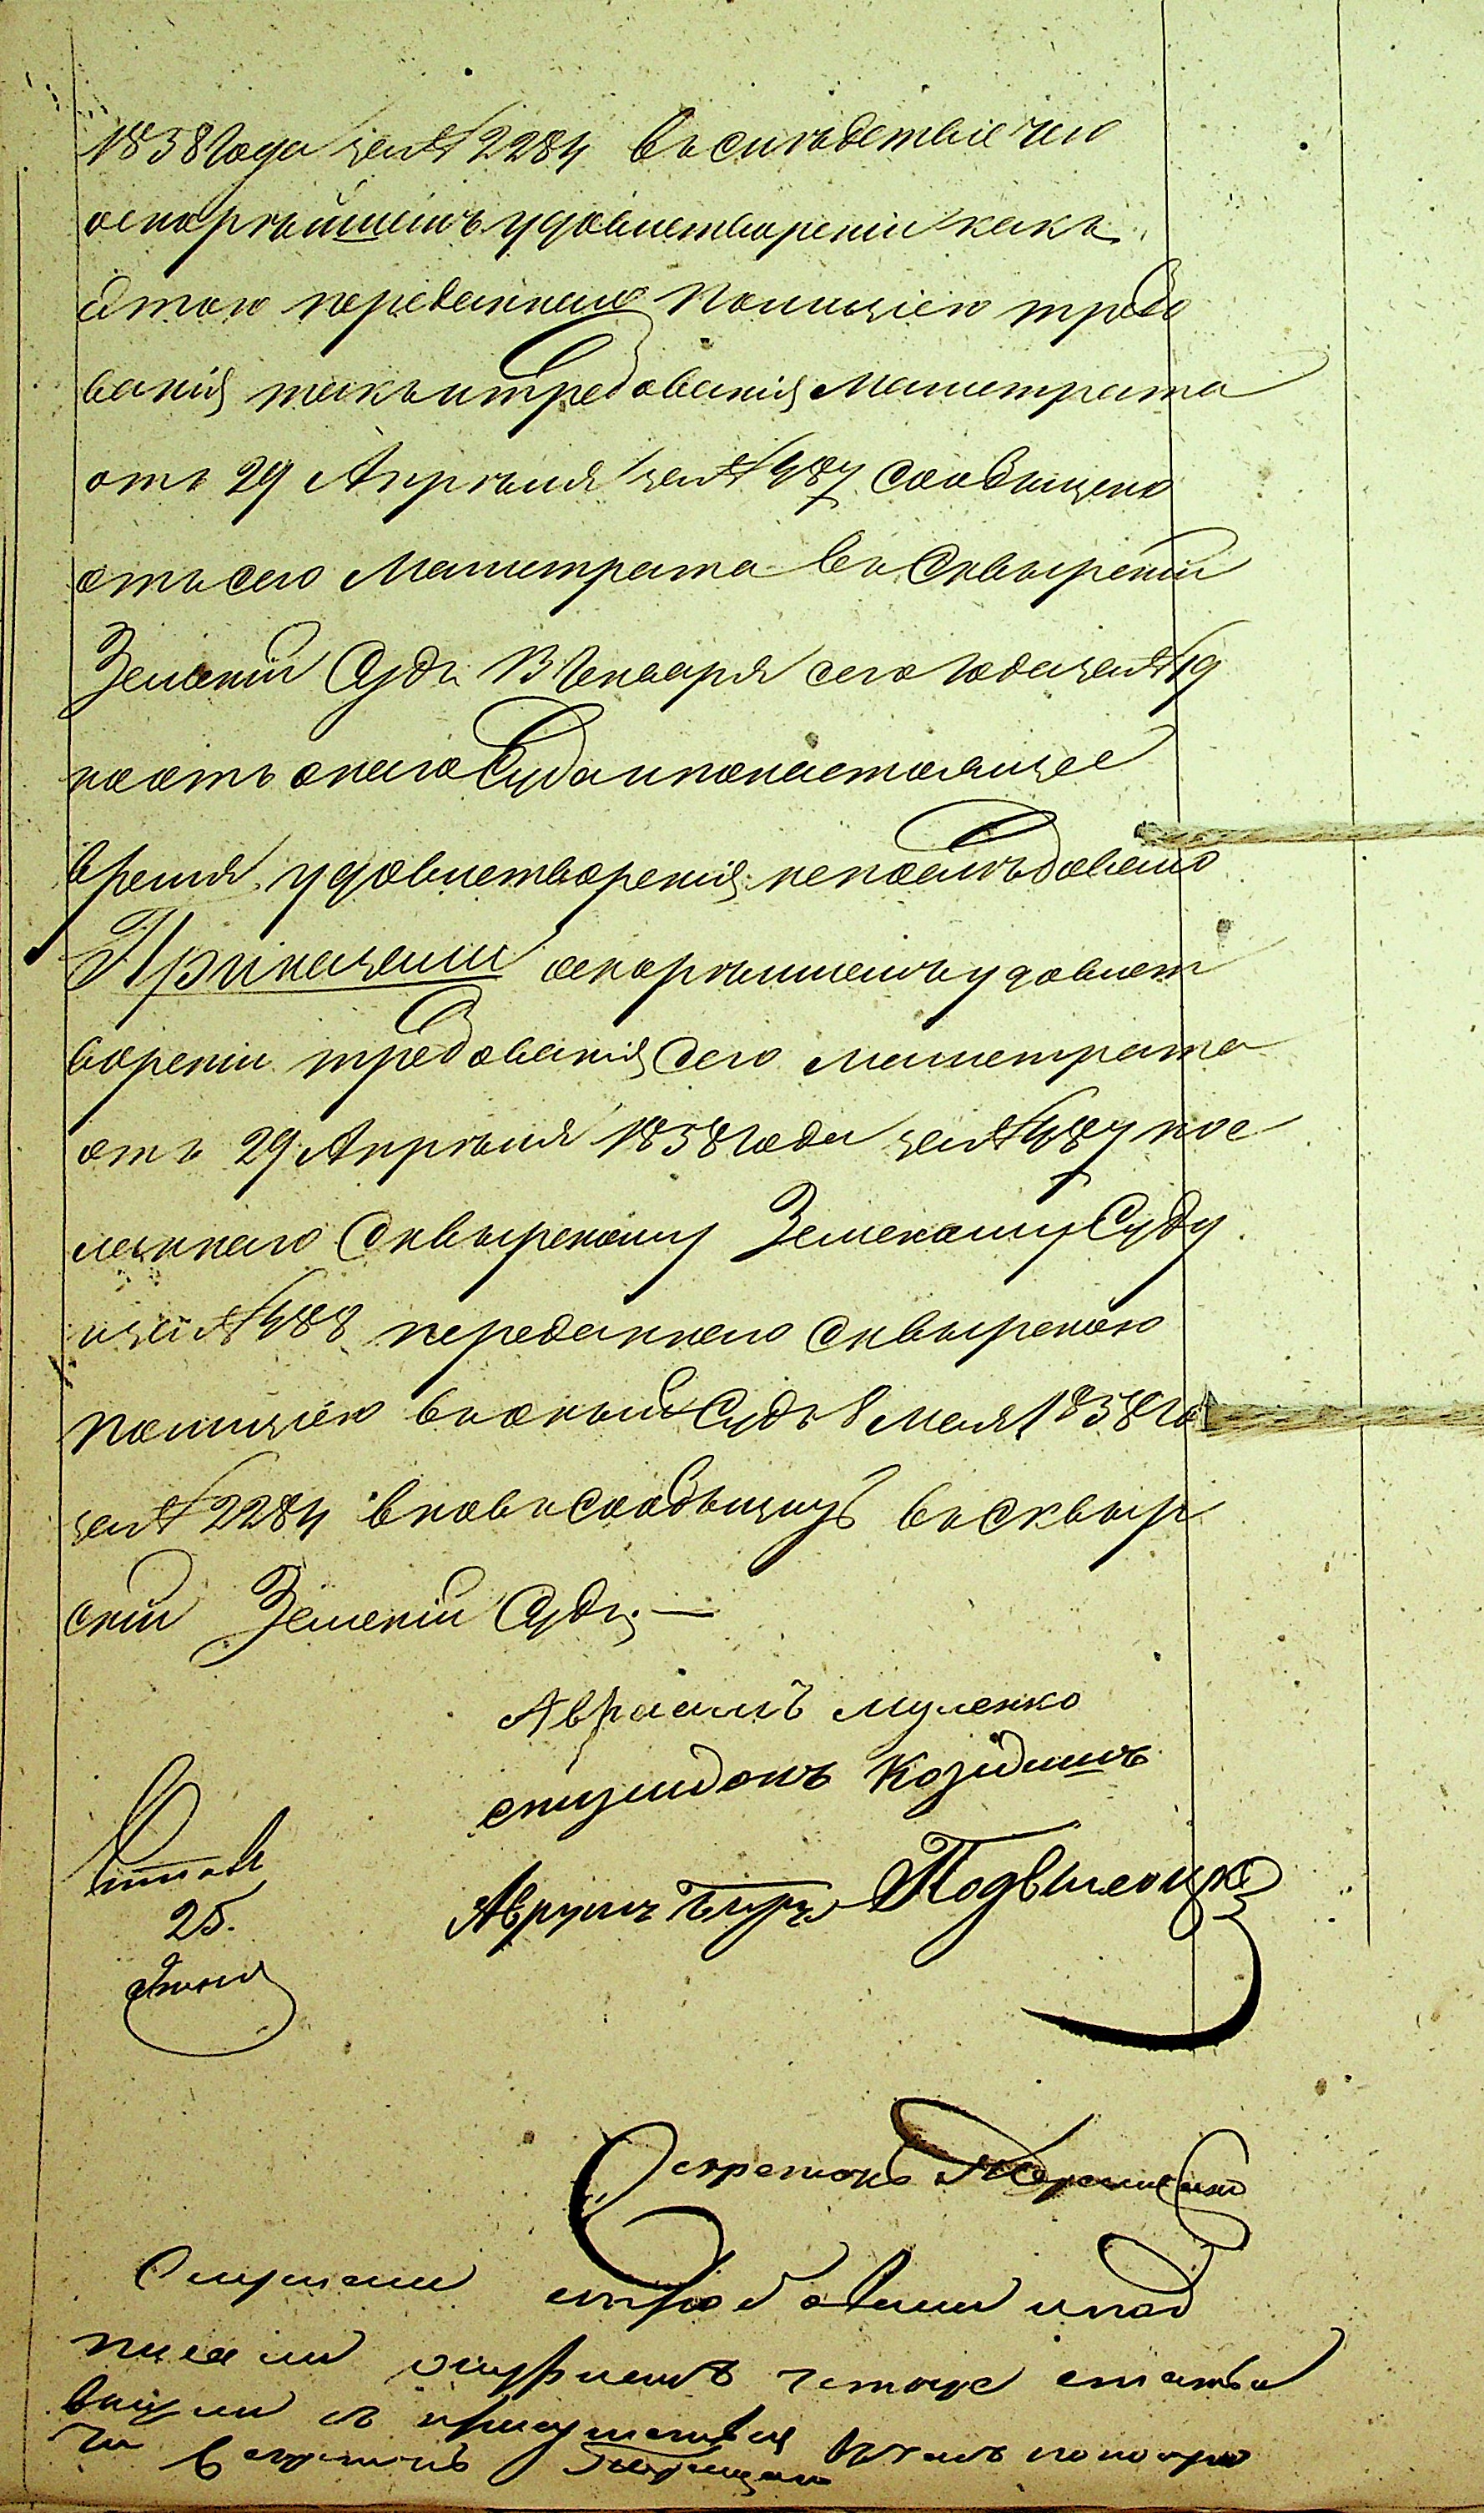 1858 года за № 2284 въ слѣдствіе чего
оскорѣйшемъ удовлетвореніи какъ
этого переданнаго Полиціею требо
ванія такъ и требованія Магистрата
отъ 29 Апрѣля за № 487 сообщено
отъ сего Магистрата въ Сквырскій
Земскій Судъ 13 Генваря сего года за № 19
но отъ онаго Суда и по настоящее
время удовлетворенія непослѣдовало
Приказали оскорѣйшемъ удовлет
вореніи требованія сего Магистрата
отъ 29 Апрѣля 1858 года за № 487 пос
ланнаго Сквырскому Земскому Суду
и за № 488 переданнаго Сквырскою
Полиціею въ оный Судъ 8 Мая 1858 го
за № 2284 вновь сообщить въ Сквыр
скій Земскій Судъ. —
Авраамъ Муленко
Аврумъ Подвысоцк
25.
Іюня
Секретарь
Слушали и под
писали журналъ
Секретарь